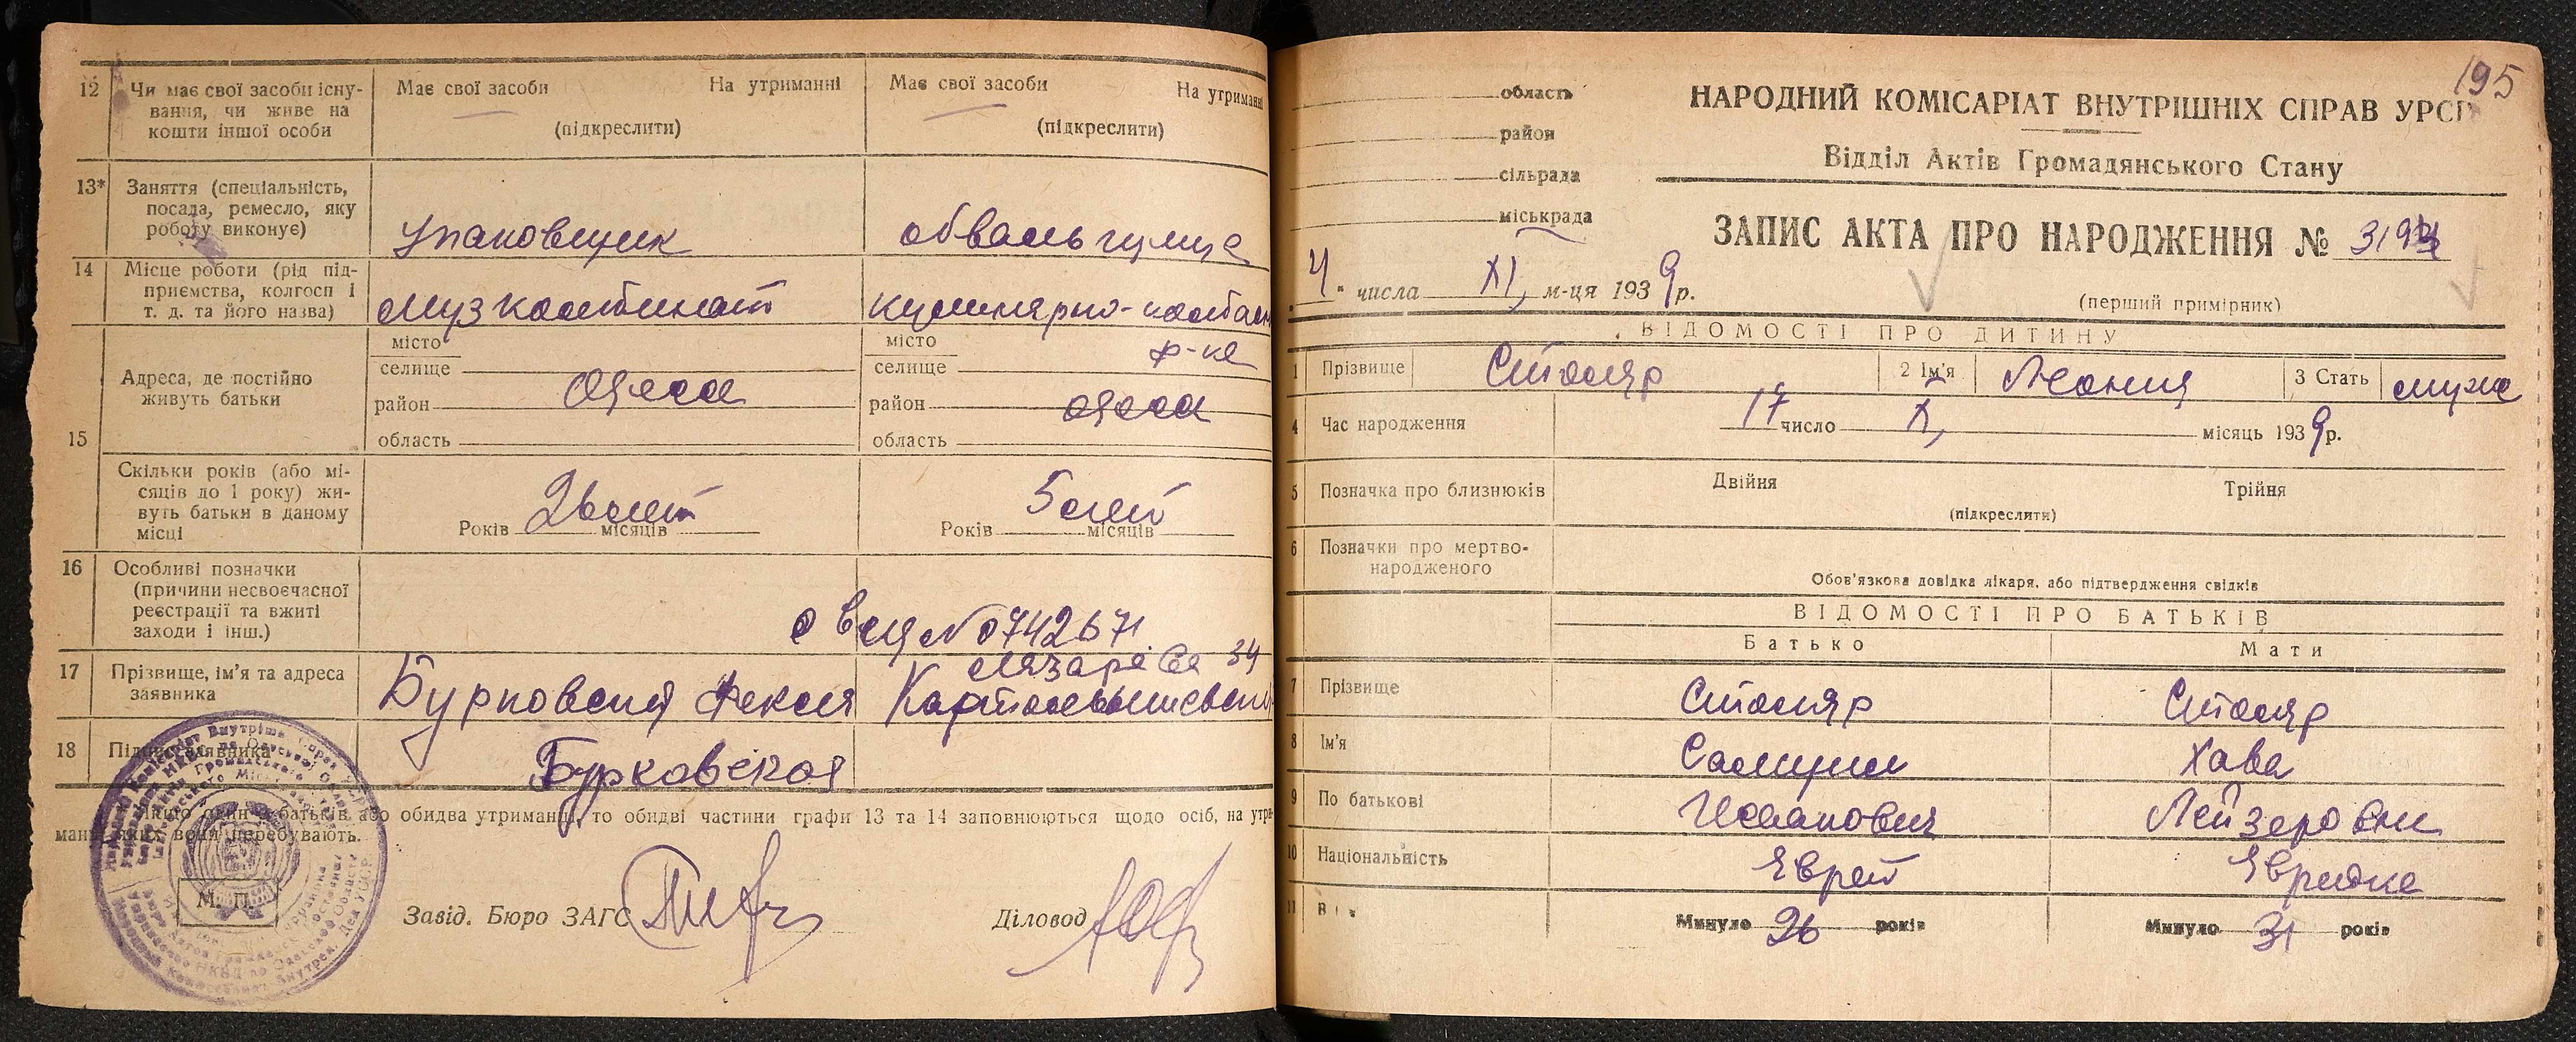 12 Чи має свої засоби існу-
вання, чи живе на
кошти іншої особи
Має свої засоби На утриманні
(підкреслити)
Має свої засоби На утриманні
(підкреслити)
13* Заняття (спеціальність,
посада, ремесло, яку
роботу виконує)
Упаковщик
14 Місце роботи (рід під-
приємства, колгосп і
т. д. та його назва)
Музкомбинат
ф-ка
15 Адреса, де постійно
живуть батьки
місто
селище
район
область
Одесса
місто
селище
район
область
Одесса
Скільки років (або мі-
сяців до 1 року) жи-
вуть батьки в даному
місці
Років 26 лет місяців
Років 5 лет місяців
16 Особливі позначки
(причини несвоєчасної
реєстрації та вжиті
заходи і інш.)
№ 0742671
17 Прізвище, ім'я та адреса
заявника
Бурковская Фекля
Лазарева 34
18 Підпис заявника
Бурковская
Якщо один з батьків або обидва утриманці, то обидві частини графи 13 та 14 заповнюються щодо осіб, на утри-
манні яких вони перебувають.
М. П.
Завід. Бюро ЗАГС
Діловод
195
область
район
сільрада
міськрада
НАРОДНИЙ КОМІСАРІАТ ВНУТРІШНІХ СПРАВ УРСР
Відділ Актів Громадянського Стану
ЗАПИС АКТА ПРО НАРОДЖЕННЯ №
"4" числа XI, м-ця 1939 р.
(перший примірник)
ВІДОМОСТІ ПРО ДИТИНУ
1 Прізвище Столяр 2 Ім'я Леонид 3 Стать муж
4 Час народження 17 число X, місяць 1939 р.
5 Позначка про близнюків Двійня Трійня
(підкреслити)
6 Позначки про мертво-
народженого
Обов'язкова довідка лікаря, або підтвердження свідків
ВІДОМОСТІ ПРО БАТЬКІВ
Батько Мати
7 Прізвище Столяр Столяр
8 Ім'я Самуил Хава
9 По батькові Лейзеровна
10 Національність Еврей Еврейка
11 Вік Минуло 26 років Минуло 31 років